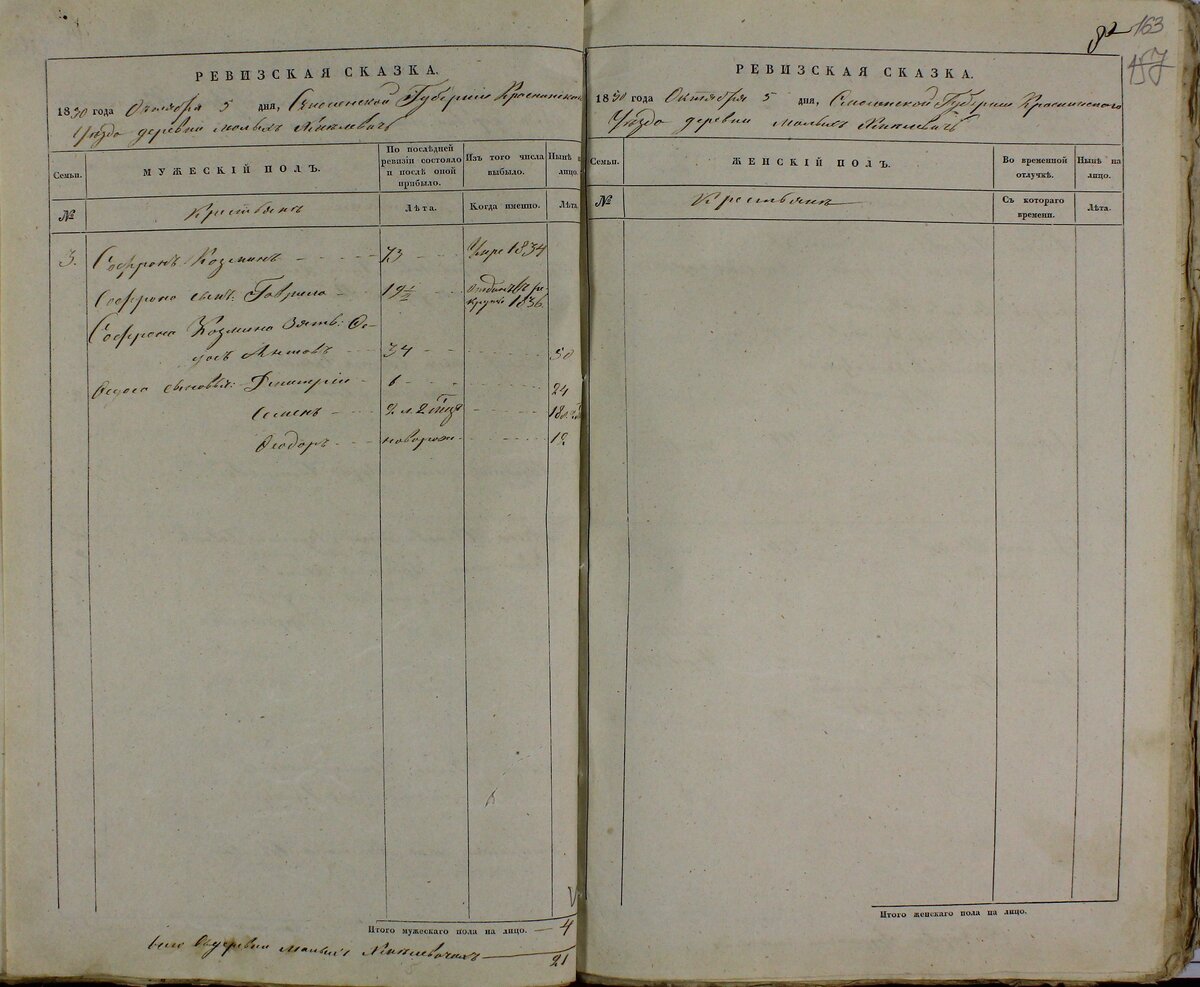 82 163
157
РЕВИЗСКАЯ СКАЗКА.
1850 года Октября 5 дня, Смоленской Губерніи Краснинскаго
Уѣзда деревни малыхъ
Семьи.
МУЖЕСКІЙ ПОЛЪ.
По послѣдней ревизіи состояло и послѣ оной прибыло.
Изъ того числа выбыло.
Нынѣ на лицо.
№
Крестьянъ
Лѣта.
Когда именно.
Лѣта.
3. Софронъ Козминъ 73 Умре 1834
Софрона сынъ: Гаврило 19½ Отданъ въ ре-
круты 1836.
Софрона Козмина зять: Ѳе-
досъ 34 50
Ѳедоса сыновья: Дмитрій 6 24
Семенъ 2 л. 2 18
Ѳеодоръ новорож.
Итого мужескаго пола на лицо. — 4
деревни малыхъ 21
РЕВИЗСКАЯ СКАЗКА.
1850 года Октября 5 дня, Смоленской Губерніи Краснинскаго
Уѣзда деревни малыхъ
Семьи.
ЖЕНСКІЙ ПОЛЪ.
Во временной отлучкѣ.
Нынѣ на лицо.
№
Крестьянъ
Съ котораго времени.
Лѣта.
Итого женскаго пола на лицо.